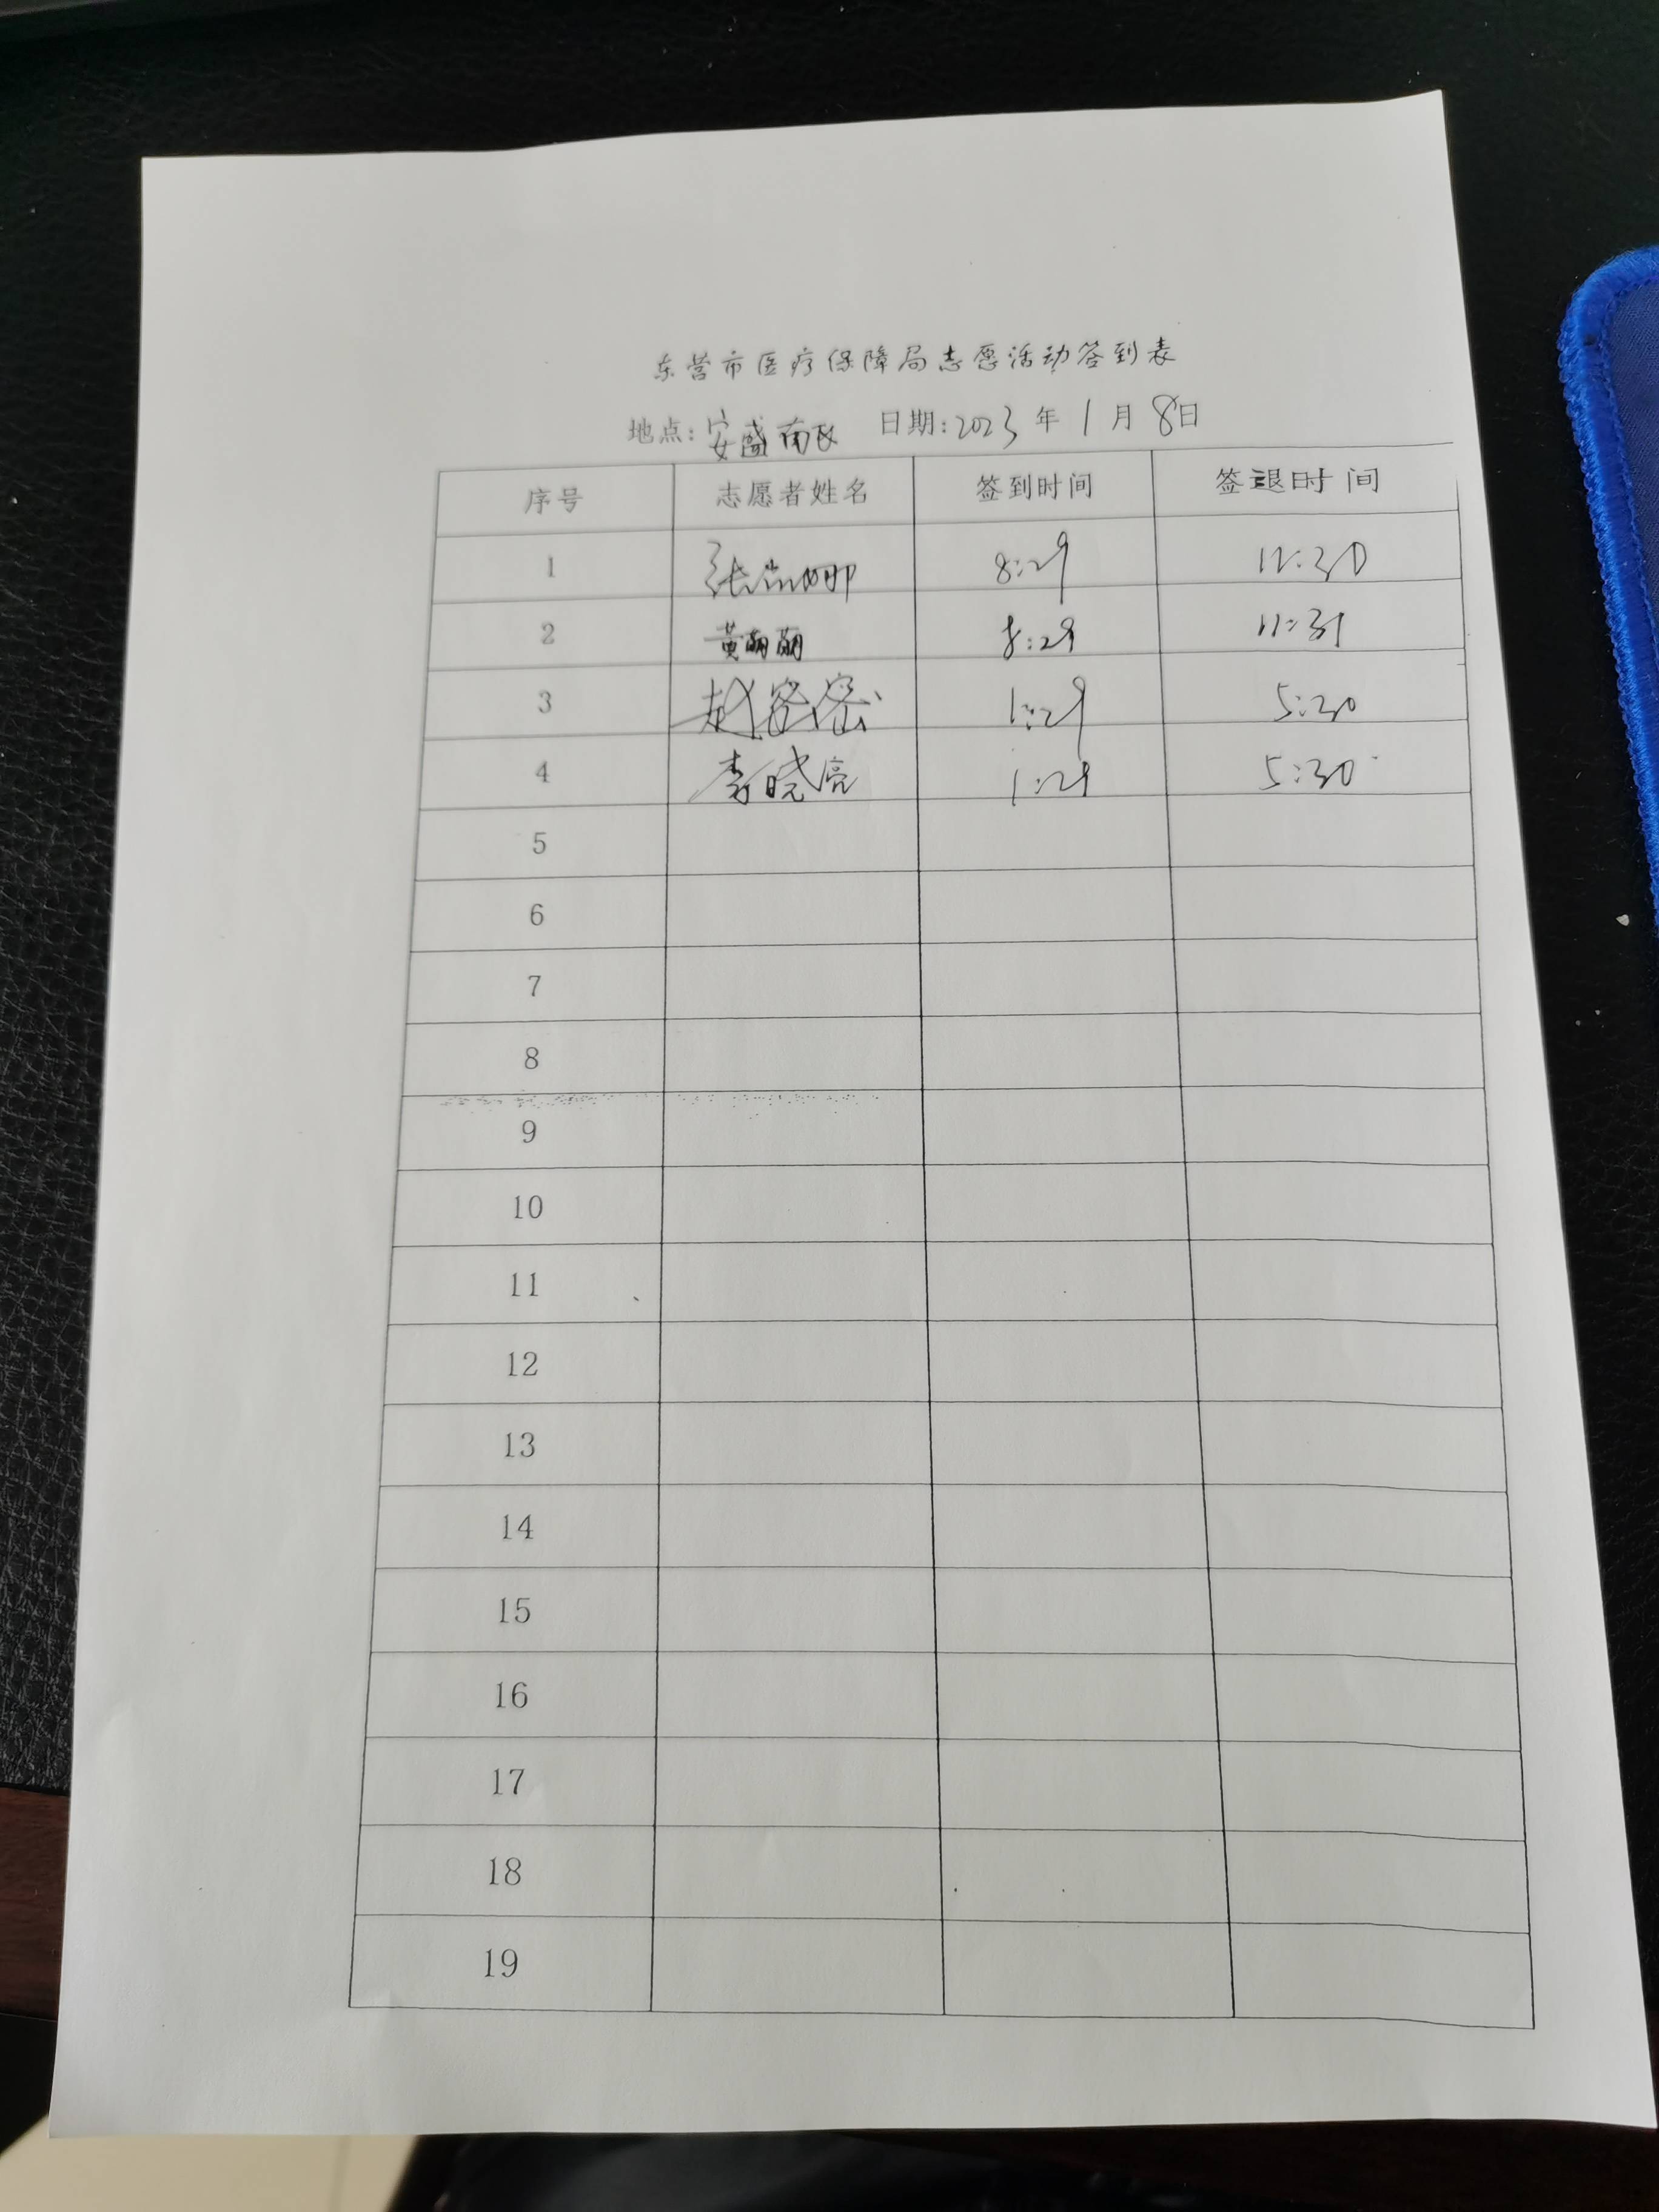 东营市医疗保障局志愿活动签到表
地点:安盛南区 日期:2023年1月8日
序号 志愿者姓名 签到时间 签退时间
1 张 娜 8:29 12:30
2 黄萌萌 8:29 11:31
3 赵密密 1:29 5:30
4 李晓亮 1:29 5:30
5
6
7
8
9
10
11
12
13
14
15
16
17
18
19